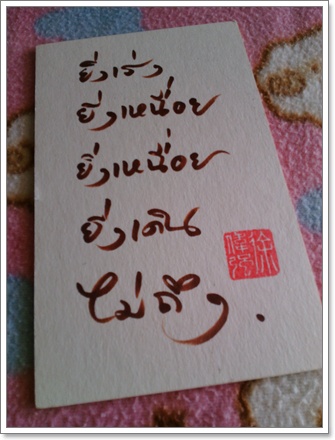 ยิ่งเร่ง
ยิ่งเหนื่อย
ยิ่งเหนื่อย
ยิ่งเดิน
ไม่ถึง.